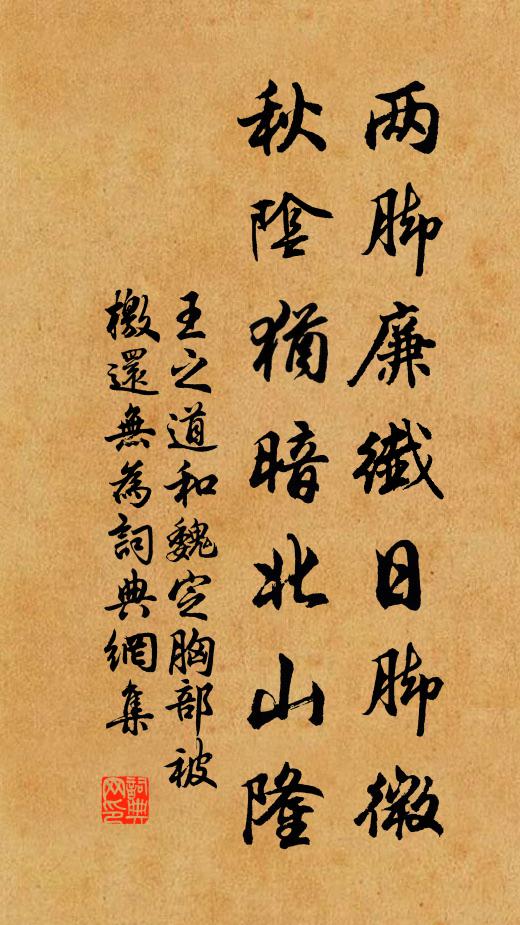 两脚廉纖日脚微
秋陰猶暗北山隆
王之道和魏定胸部被
檄還無為詞典網集
詞典
网印